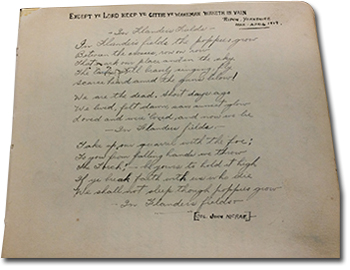 EXCEPT YE LORD KEEP YE CITTIE YE WAKEMAN WAKETH IN VAIN
RIPON, YORKSHIRE
1919
In Flanders Fields
In Flanders fields the poppies grow
Between the crosses row on row
That mark our place and in the sky
The larks still bravely singing fly
Scarce heard amid the guns below.
We are the dead, short days ago
We lived, felt dawn saw sunset glow
Loved and were loved, and now we lie
In Flanders fields
Take up our quarrel with the foe;
To you from falling hands we throw
The Torch! yours to hold it high
If ye break faith with us who die
We shall not sleep though poppies grow
In Flanders fields
COL. JOHN McCRAE